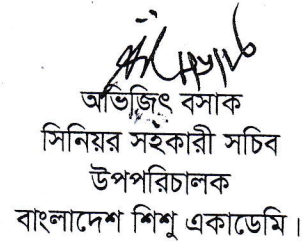 অভিজিৎ বসাক
সিনিয়র সহকারী সচিব
উপপরিচালক
বাংলাদেশ শিশু একাডেমি।